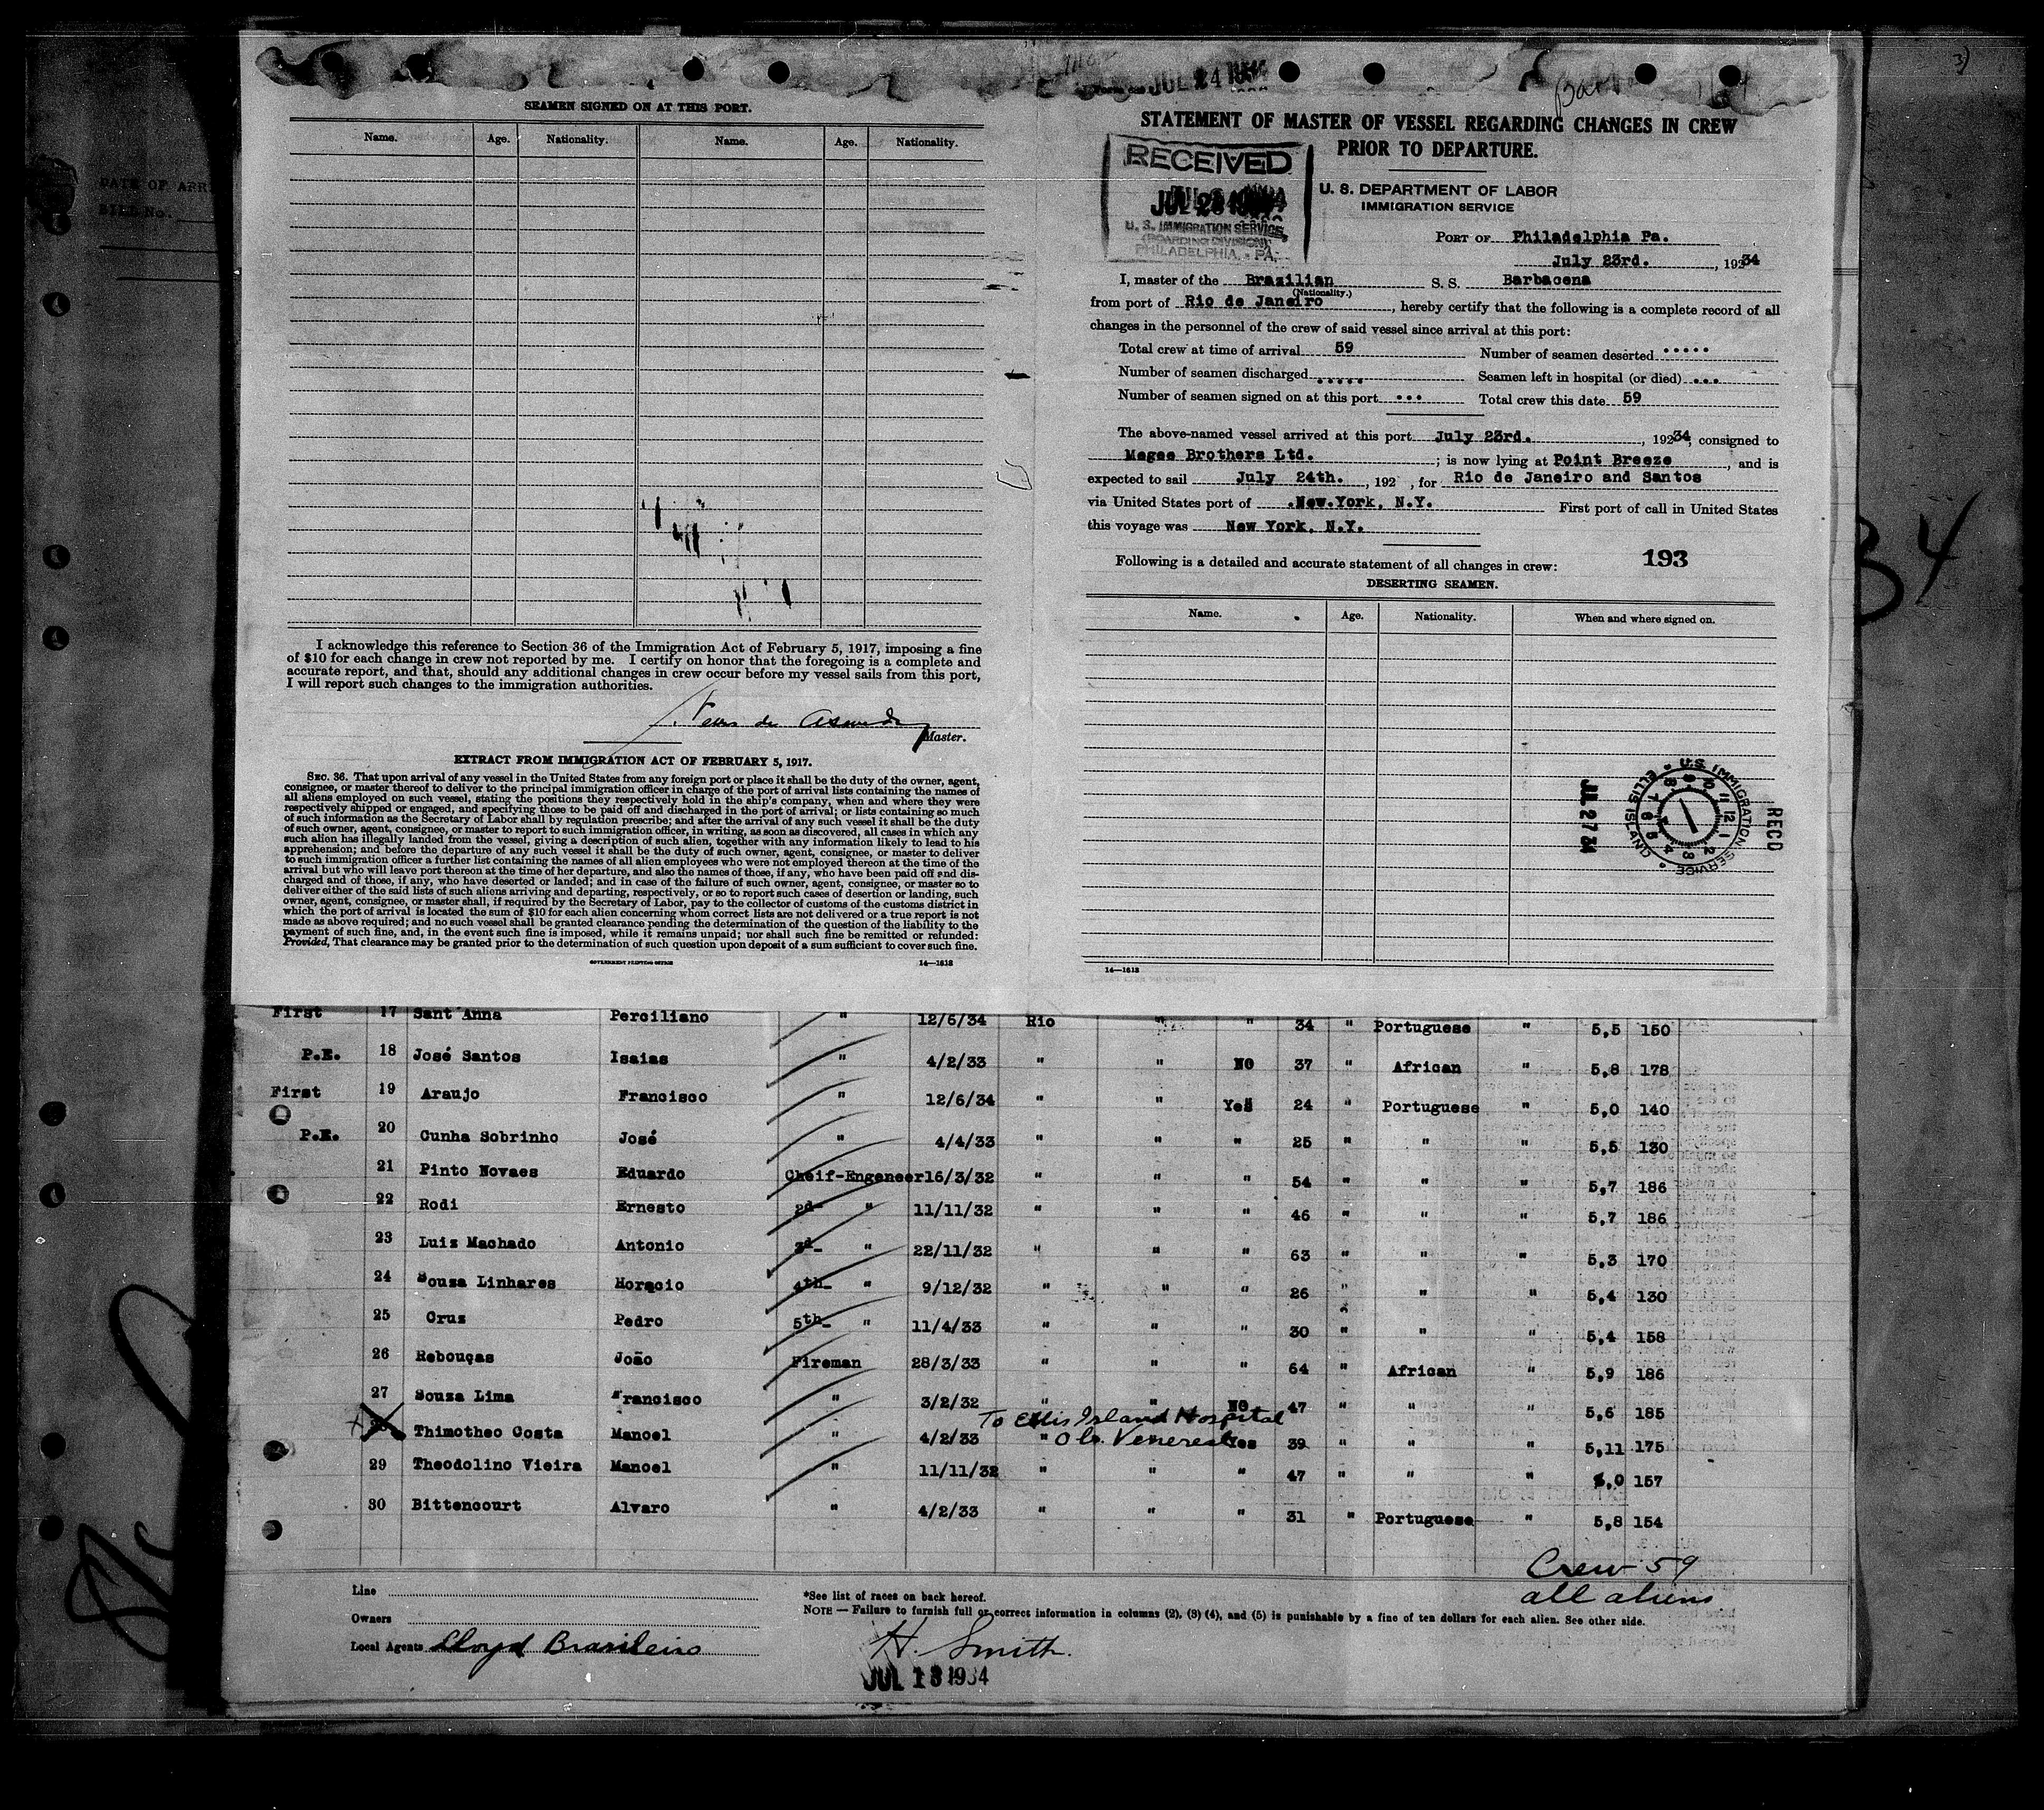 SEAMEN SIGNED ON AT THIS PORT.
Name. Age. Nationality. Name. Age. Nationality.
I acknowledge this reference to Section 36 of the Immigration Act of February 5, 1917, imposing a fine
of $10 for each change in crew not reported by me. I certify on honor that the foregoing is a complete and
accurate report, and that, should any additional changes in crew occur before my vessel sails from this port,
I will report such changes to the immigration authorities.
Master.
EXTRACT FROM IMMIGRATION ACT OF FEBRUARY 5, 1917.
SEC. 36. That upon arrival of any vessel in the United States from any foreign port or place it shall be the duty of the owner, agent,
consignee, or master thereof to deliver to the principal immigration officer in charge of the port of arrival lists containing the names of
all aliens employed on such vessel, stating the positions they respectively hold in the ship's company, when and where they were
respectively shipped or engaged, and specifying those to be paid off and discharged in the port of arrival; or lists containing so much
of such information as the Secretary of Labor shall by regulation prescribe; and after the arrival of any such vessel it shall be the duty
of such owner, agent, consignee, or master to report to such immigration officer, in writing, as soon as discovered, all cases in which any
such alien has illegally landed from the vessel, giving a description of such alien, together with any information likely to lead to his
apprehension; and before the departure of any such vessel it shall be the duty of such owner, agent, consignee, or master to deliver
to such immigration officer a further list containing the names of all alien employees who were not employed thereon at the time of the
arrival but who will leave port thereon at the time of her departure, and also the names of those, if any, who have been paid off and dis-
charged and of those, if any, who have deserted or landed; and in case of the failure of such owner, agent, consignee, or master so to
deliver either of the said lists of such aliens arriving and departing, respectively, or so to report such cases of desertion or landing, such
owner, agent, consignee, or master shall, if required by the Secretary of Labor, pay to the collector of customs of the customs district in
which the port of arrival is located the sum of $10 for each alien concerning whom correct lists are not delivered or a true report is not
made as above required; and no such vessel shall be granted clearance pending the determination of the question of the liability to the
payment of such fine, and, in the event such fine is imposed, while it remains unpaid; nor shall such fine be remitted or refunded:
Provided, That clearance may be granted prior to the determination of such question upon deposit of a sum sufficient to cover such fine.
GOVERNMENT PRINTING OFFICE 14—1613
JUL 24
STATEMENT OF MASTER OF VESSEL REGARDING CHANGES IN CREW
PRIOR TO DEPARTURE.
RECEIVED
U. S. IMMIGRATION SERVICE
(BOARDING DIVISION)
PHILADELPHIA, - PA.
U. S. DEPARTMENT OF LABOR
IMMIGRATION SERVICE
PORT OF Philadelphia Pa.
July 23rd. , 19234
I, master of the Brazilian S. S. Barbacena
(Nationality.)
from port of Rio de Janeiro , hereby certify that the following is a complete record of all
changes in the personnel of the crew of said vessel since arrival at this port:
Total crew at time of arrival 59 Number of seamen deserted .....
Number of seamen discharged ..... Seamen left in hospital (or died) ...
Number of seamen signed on at this port ... Total crew this date 59
The above-named vessel arrived at this port July 23rd. , 19234, consigned to
Magee Brothers Ltd. ; is now lying at Point Breeze , and is
expected to sail July 24th. , 192 , for Rio de Janeiro and Santos
via United States port of .New.York, N.Y. First port of call in United States
this voyage was New York. N.Y.
Following is a detailed and accurate statement of all changes in crew: 193
DESERTING SEAMEN.
Name. Age. Nationality. When and where signed on.
REC'D
U.S. IMMIGRATION SERVICE
ELLIS ISLAND
JUL 27 34
14—1613
34
First 17 Sant'Anna Perciliano " 12/6/34 Rio " " 34 " Portuguese " 5,5 150
P.E. 18 José Santos Isaias " 4/2/33 " " NO 37 " African " 5,8 178
First 19 Araujo Francisco " 12/6/34 " " Yes 24 " Portuguese " 5,0 140
P.E. 20 Cunha Sobrinho José " 4/4/33 " " " 25 " " " 5,5 130
21 Pinto Novaes Eduardo Cheif-Engeneer 16/3/32 " " " 54 " " " 5,7 186
22 Rodi Ernesto 2d- " 11/11/32 " " " 46 " " " 5,7 186
23 Luiz Machado Antonio 3d- " 22/11/32 " " " 63 " " " 5,3 170
24 Souza Linhares Horacio 4th- " 9/12/32 " " " 26 " " " 5,4 130
25 Cruz Pedro 5th- " 11/4/33 " " " 30 " " " 5,4 158
26 Rebouças João Fireman 28/3/33 " " " 64 " African " 5,9 186
27 Souza Lima Francisco " 3/2/32 " " NO 47 " " " 5,6 185
To Ellis Island Hospital
Thimotheo Costa Manoel " 4/2/33 " Venereal Yes 39 " " " 5,11 175
29 Theodolino Vieira Manoel " 11/11/32 " " " 47 " " " 6,0 157
30 Bittencourt Alvaro " 4/2/33 " " " 31 " Portuguese " 5,8 154
Crew 59
all aliens
Line
Owners
Local Agents Lloyd Brasileiro
*See list of races on back hereof.
NOTE — Failure to furnish full or correct information in columns (2), (3) (4), and (5) is punishable by a fine of ten dollars for each alien. See other side.
H. Smith.
JUL 13 1934